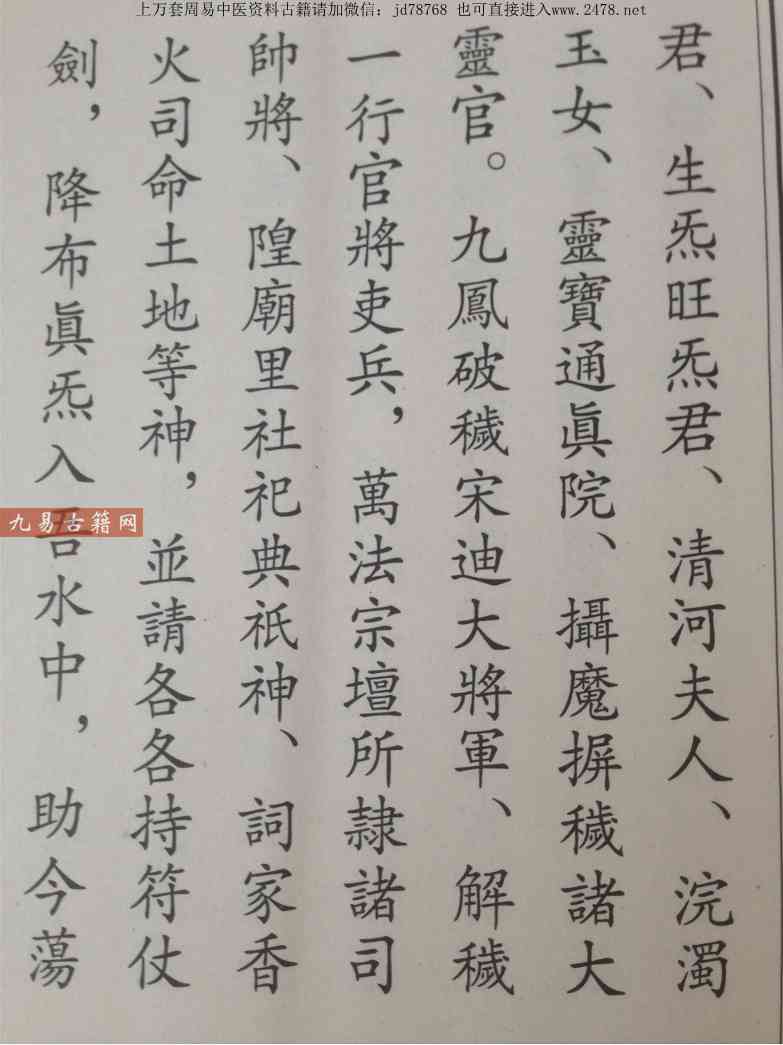 上万套周易中医资料古籍请加微信：jd78768 也可直接进入www.2478.net
君、生炁旺炁君、清河夫人、浣濁
玉女、靈寶通眞院、攝魔摒穢諸大
靈官。九鳳破穢宋迪大將軍、解穢
一行官將吏兵，萬法宗壇所隷諸司
帥將、隍廟里社祀典祇神、詞家香
火司命土地等神，並請各各持符仗
劍，降布眞炁入吾水中，助今蕩
九易古籍网